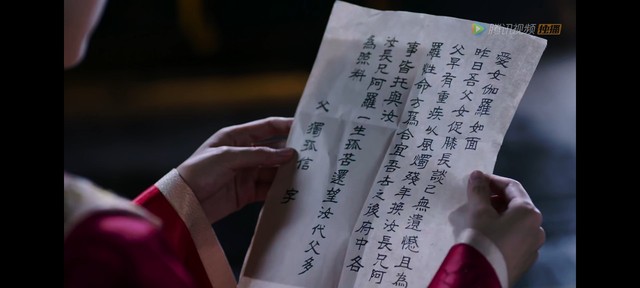 愛女伽羅如面
昨日吾父女促膝長談已無遺憾且為
父早有重疾以風燭殘年換汝長兄阿
羅姓命方為合宜吾去之後府中各
事皆托與汝
汝長兄阿羅一生孤苦還望汝代父多
為照料
父 獨孤信 字
腾讯视频 独播